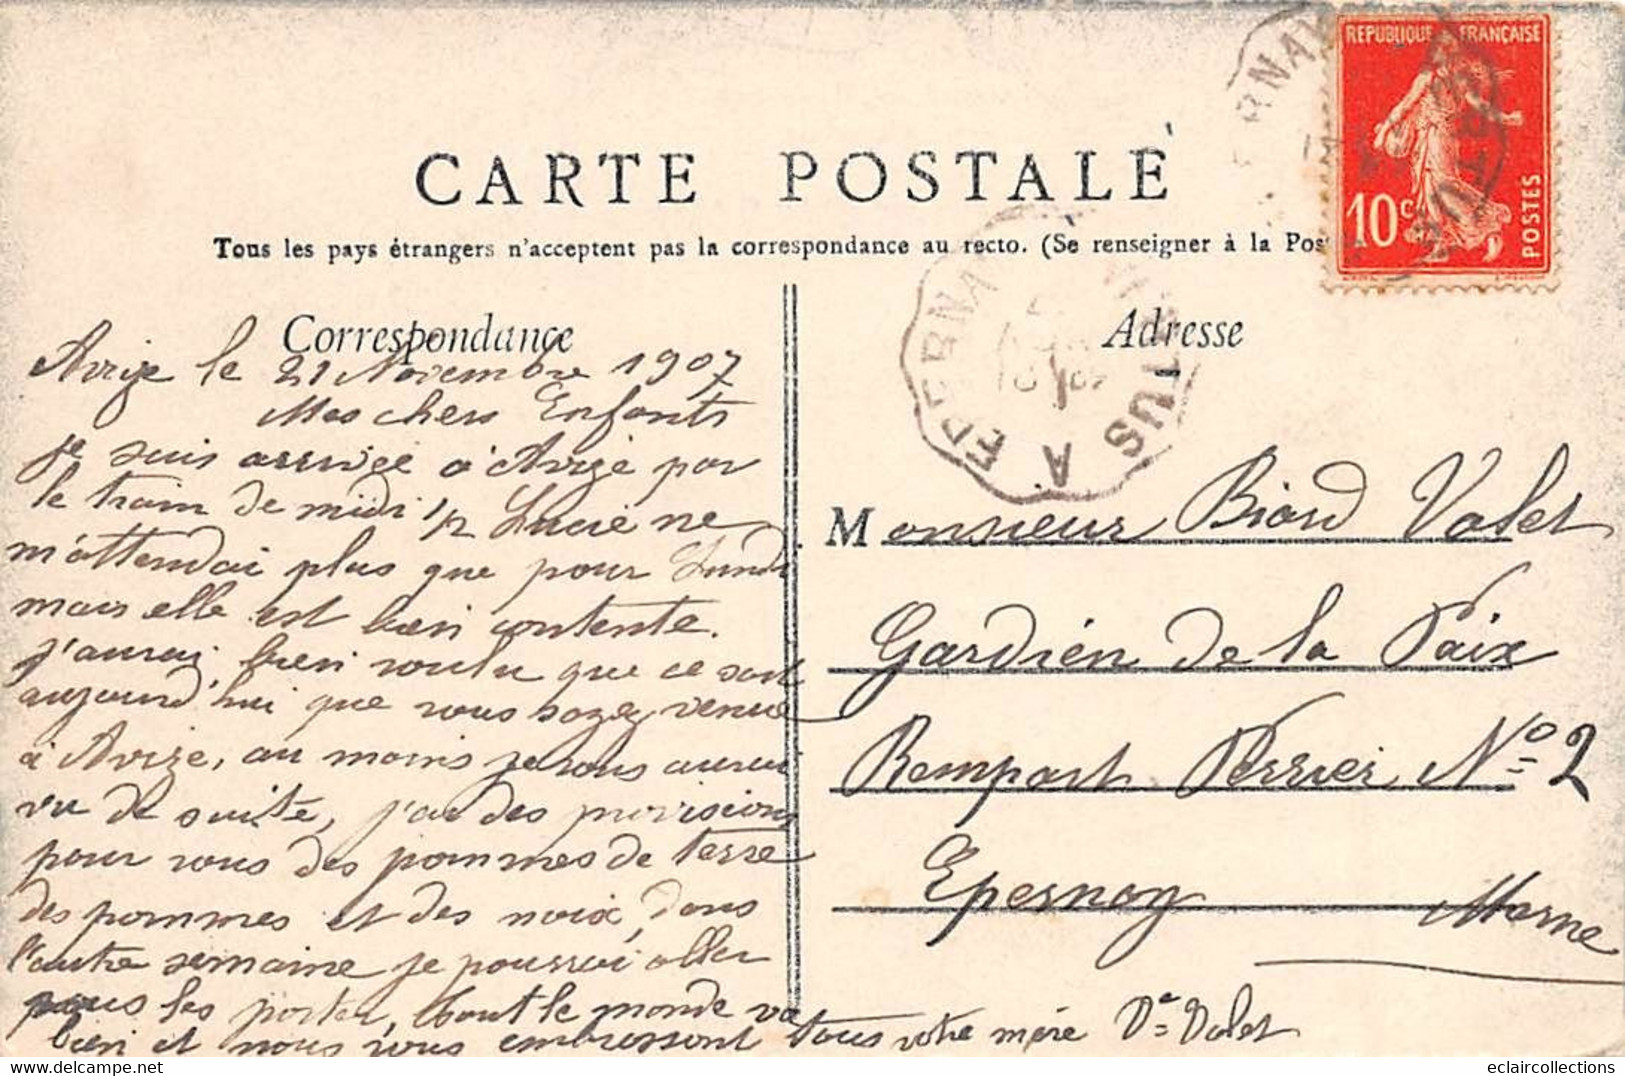 CARTE POSTALE
Tous les pays étrangers n'acceptent pas la correspondance au recto. (Se renseigner à la Pos
Correspondance
Avize le 21 Novembre 1907
Mes chers Enfants
je suis arrivée à Avize par
le train de midi 1/2 Lucie ne
m'attendai plus que pour Lundi
mais elle est bien contente.
j'aurai bien voulu que ce soit
aujourd'hui que vous soyez venue
à Avize, au moins je vous aurai
vu de suite, j'ai des provisions
pour vous des pommes de terre
des pommes et des noix, dans
l'autre semaine je pourrai aller
vous les porter, tout le monde va
bien et nous vous embrassont tous votre mère Ve Valet
Adresse
Monsieur Biard Valet
Gardien de la Paix
Rempart Perrier No 2
Epernay Marne
REPUBLIQUE FRANÇAISE
10c
POSTES
VERTUS A EPERNAY
eclaircollections